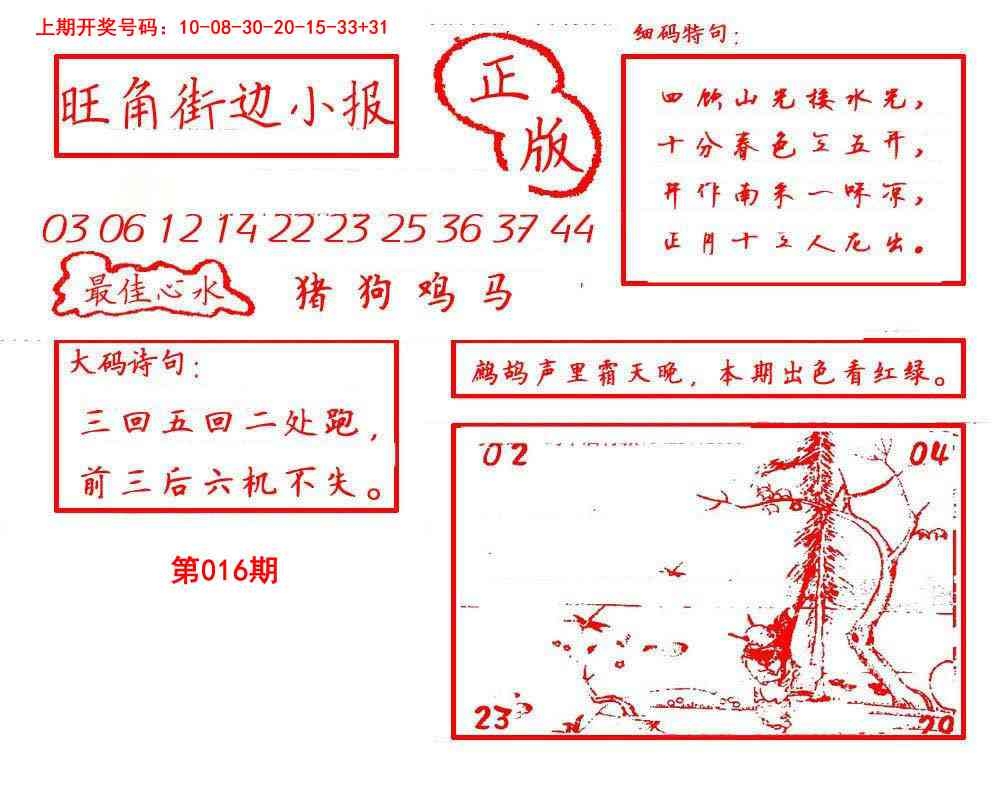 上期开奖号码：10-08-30-20-15-33+31
旺角街边小报
正版
细码特句：
四顾山光接水光，
十分春色三五开，
并作南来一味凉，
正月十三人尤出。
03 06 12 14 22 23 25 36 37 44
最佳心水
猪狗鸡马
大码诗句：
三回五回二处跑，
前三后六机不失。
鹧鸪声里霜天晚，本期出色看红绿。
第016期
02
04
23
20